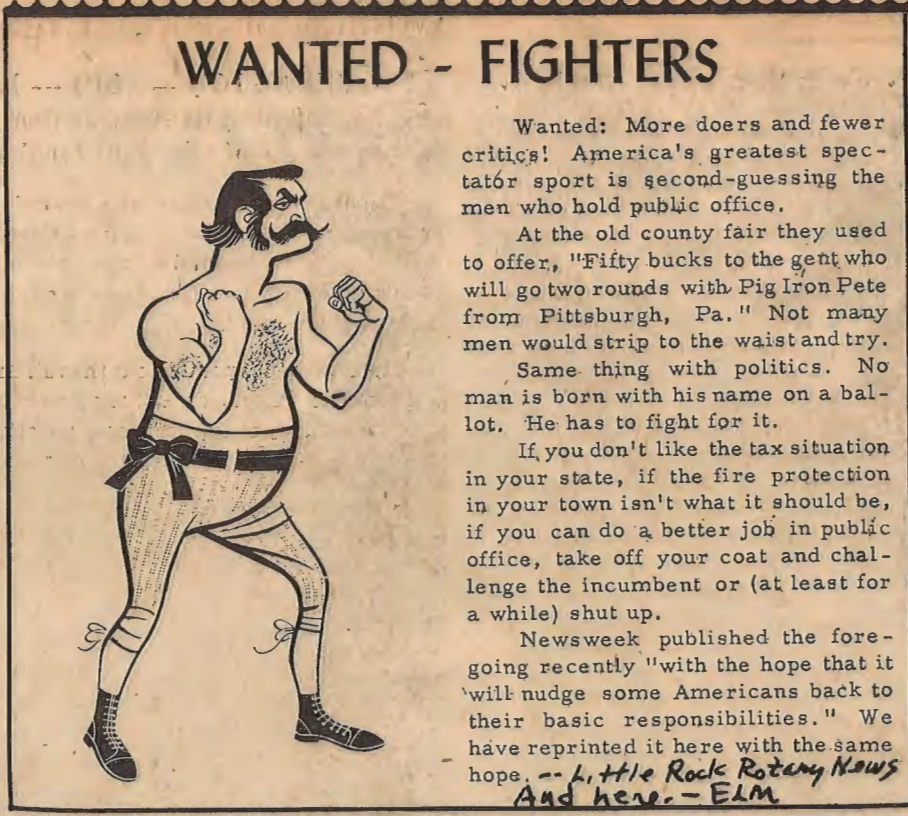 WANTED - FIGHTERS
Wanted: More doers and fewer
critics! America's greatest spec-
tator sport is second-guessing the
men who hold public office.
At the old county fair they used
to offer, "Fifty bucks to the gent who
will go two rounds with Pig Iron Pete
from Pittsburgh, Pa." Not many
men would strip to the waist and try.
Same thing with politics. No
man is born with his name on a bal-
lot. He has to fight for it.
If you don't like the tax situation
in your state, if the fire protection
in your town isn't what it should be,
if you can do a better job in public
office, take off your coat and chal-
lenge the incumbent or (at least for
a while) shut up.
Newsweek published the fore-
going recently "with the hope that it
will nudge some Americans back to
their basic responsibilities." We
have reprinted it here with the same
hope. -- Little Rock Rotary News
And here. - ELM